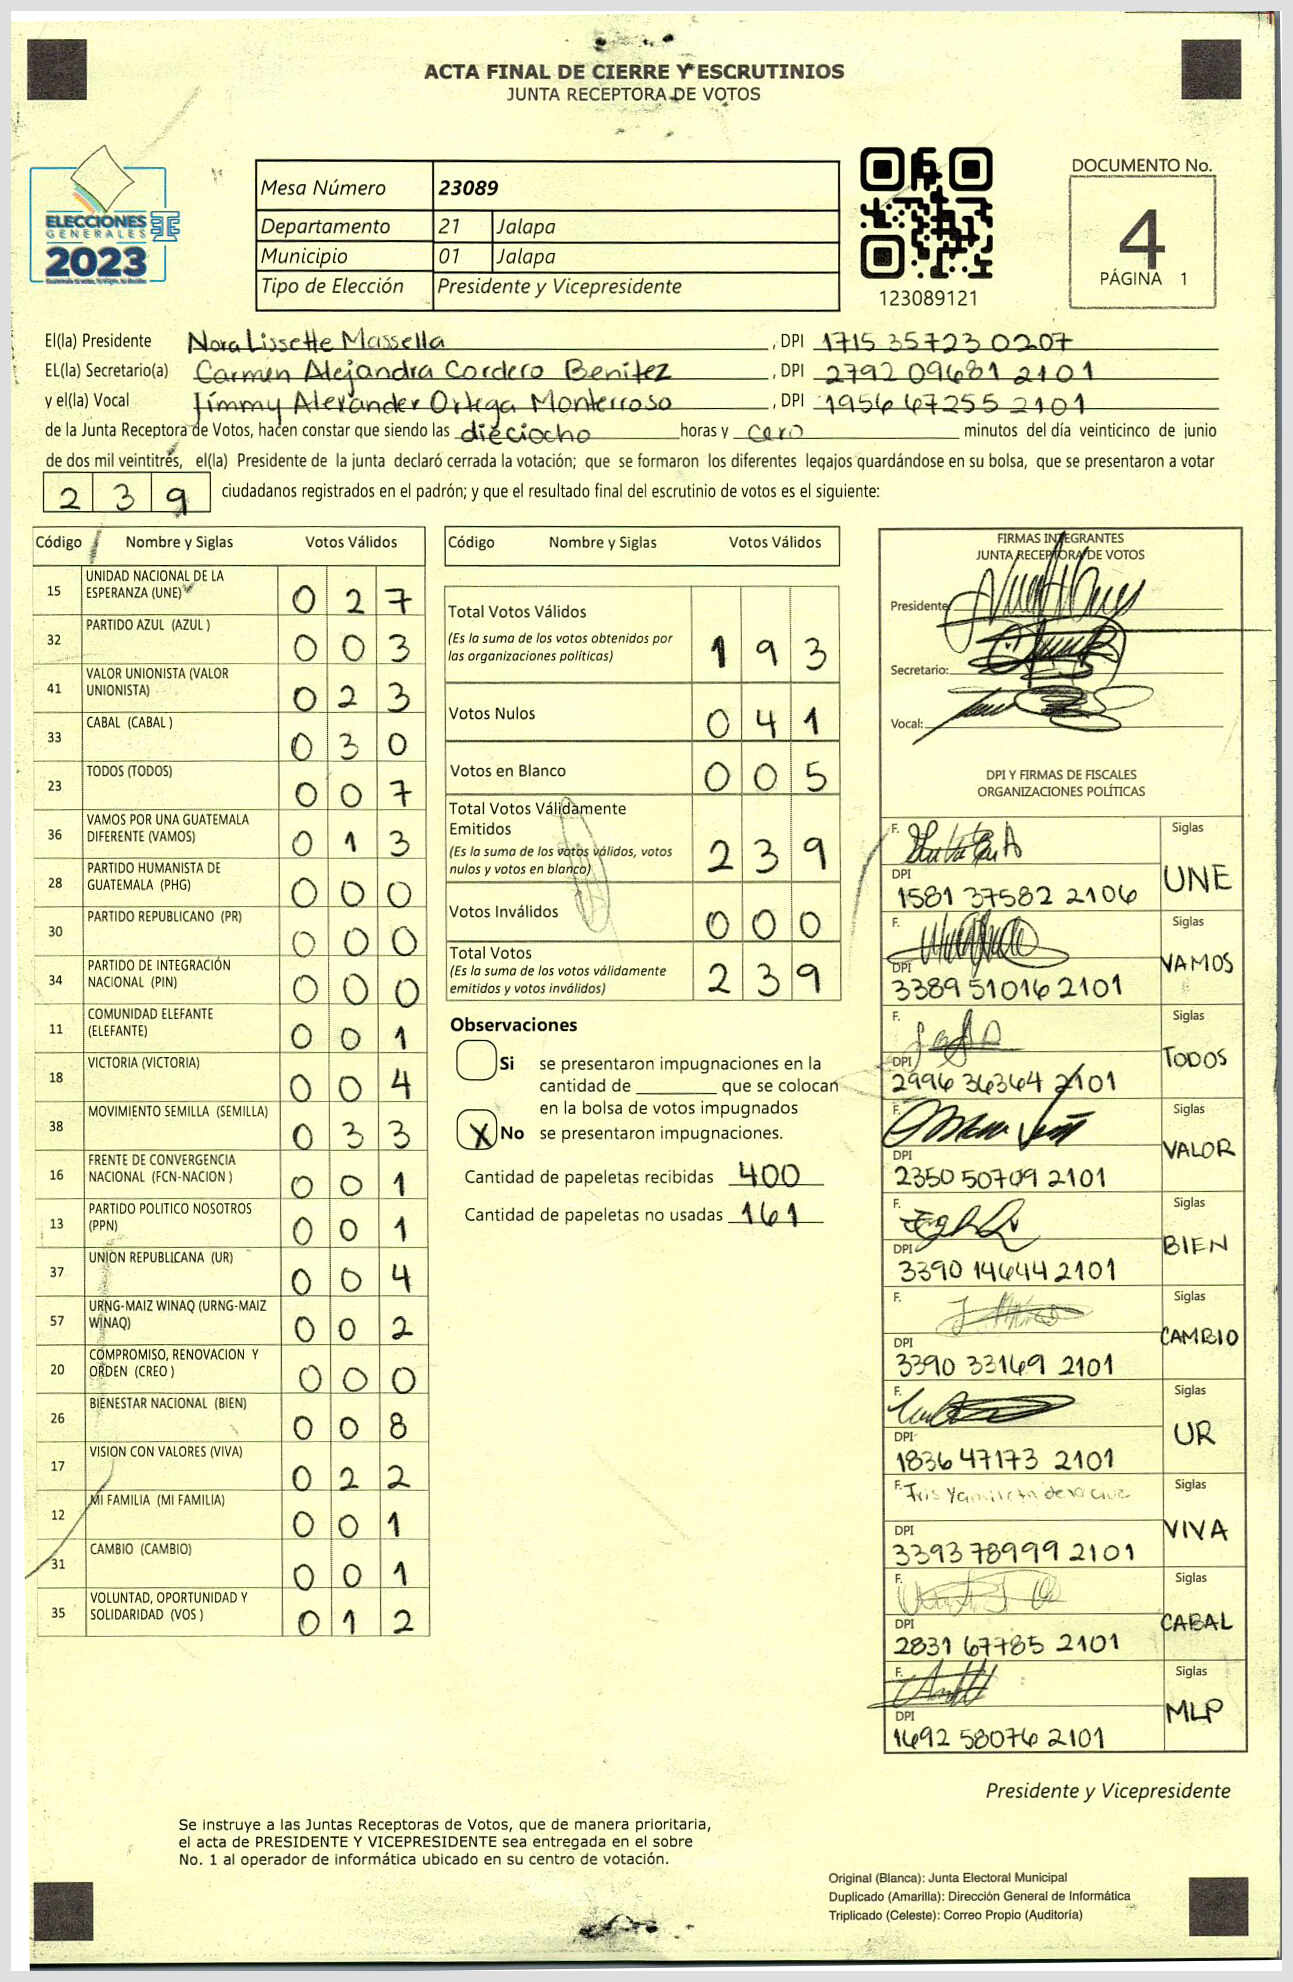 ACTA FINAL DE CIERRE Y ESCRUTINIOS
JUNTA RECEPTORA DE VOTOS
ELECCIONES
GENERALES
2023
Mesa Número 23089
Departamento 21 Jalapa
Municipio 01 Jalapa
Tipo de Elección Presidente y Vicepresidente
123089121
DOCUMENTO No.
4
PÁGINA 1
El(la) Presidente Nora Lissette Massella, DPI 1715 35723 0207
EL(la) Secretario(a) Carmen Alejandra Cordero Benitez, DPI 2792 09681 2101
y el(la) Vocal Jimmy Alexander Ortega Monterroso, DPI 1956 67255 2101
de la Junta Receptora de Votos, hacen constar que siendo las dieciocho horas y cero minutos del día veinticinco de junio
de dos mil veintitrés, el(la) Presidente de la junta declaró cerrada la votación; que se formaron los diferentes legajos guardándose en su bolsa, que se presentaron a votar
239 ciudadanos registrados en el padrón; y que el resultado final del escrutinio de votos es el siguiente:
Código Nombre y Siglas Votos Válidos
15 UNIDAD NACIONAL DE LA ESPERANZA (UNE) 0 2 7
32 PARTIDO AZUL (AZUL ) 0 0 3
41 VALOR UNIONISTA (VALOR UNIONISTA) 0 2 3
33 CABAL (CABAL ) 0 3 0
23 TODOS (TODOS) 0 0 7
36 VAMOS POR UNA GUATEMALA DIFERENTE (VAMOS) 0 1 3
28 PARTIDO HUMANISTA DE GUATEMALA (PHG) 0 0 0
30 PARTIDO REPUBLICANO (PR) 0 0 0
34 PARTIDO DE INTEGRACIÓN NACIONAL (PIN) 0 0 0
11 COMUNIDAD ELEFANTE (ELEFANTE) 0 0 1
18 VICTORIA (VICTORIA) 0 0 4
38 MOVIMIENTO SEMILLA (SEMILLA) 0 3 3
16 FRENTE DE CONVERGENCIA NACIONAL (FCN-NACION ) 0 0 1
13 PARTIDO POLITICO NOSOTROS (PPN) 0 0 1
37 UNION REPUBLICANA (UR) 0 0 4
57 URNG-MAIZ WINAQ (URNG-MAIZ WINAQ) 0 0 2
20 COMPROMISO, RENOVACION Y ORDEN (CREO ) 0 0 0
26 BIENESTAR NACIONAL (BIEN) 0 0 8
17 VISION CON VALORES (VIVA) 0 2 2
12 MI FAMILIA (MI FAMILIA) 0 0 1
31 CAMBIO (CAMBIO) 0 0 1
35 VOLUNTAD, OPORTUNIDAD Y SOLIDARIDAD (VOS ) 0 1 2
Código Nombre y Siglas Votos Válidos
Total Votos Válidos
(Es la suma de los votos obtenidos por
las organizaciones politicas) 1 9 3
Votos Nulos 0 4 1
Votos en Blanco 0 0 5
Total Votos Válidamente
Emitidos
(Es la suma de los votos válidos, votos
nulos y votos en blanco) 2 3 9
Votos Inválidos 0 0 0
Total Votos
(Es la suma de los votos válidamente
emitidos y votos inválidos) 2 3 9
Observaciones
Si se presentaron impugnaciones en la
cantidad de ________ que se colocan
en la bolsa de votos impugnados
X No se presentaron impugnaciones.
Cantidad de papeletas recibidas 400
Cantidad de papeletas no usadas 161
FIRMAS INTEGRANTES
JUNTA RECEPTORA DE VOTOS
Presidente:
Secretario:
Vocal:
DPI Y FIRMAS DE FISCALES
ORGANIZACIONES POLÍTICAS
F. Siglas
DPI UNE
1581 37582 2106
F. Siglas
DPI VAMOS
3389 51016 2101
F. Siglas
DPI TODOS
2996 36364 2101
F. Siglas
DPI VALOR
2350 50709 2101
F. Siglas
DPI BIEN
3390 14644 2101
F. Siglas
DPI CAMBIO
3390 33169 2101
F. Siglas
DPI UR
1836 47173 2101
F. Siglas
DPI VIVA
3393 78999 2101
F. Siglas
DPI CABAL
2831 67785 2101
F. Siglas
DPI MLP
1692 58076 2101
Presidente y Vicepresidente
Se instruye a las Juntas Receptoras de Votos, que de manera prioritaria,
el acta de PRESIDENTE Y VICEPRESIDENTE sea entregada en el sobre
No. 1 al operador de informática ubicado en su centro de votación.
Original (Blanca): Junta Electoral Municipal
Duplicado (Amarilla): Dirección General de Informática
Triplicado (Celeste): Correo Propio (Auditoría)